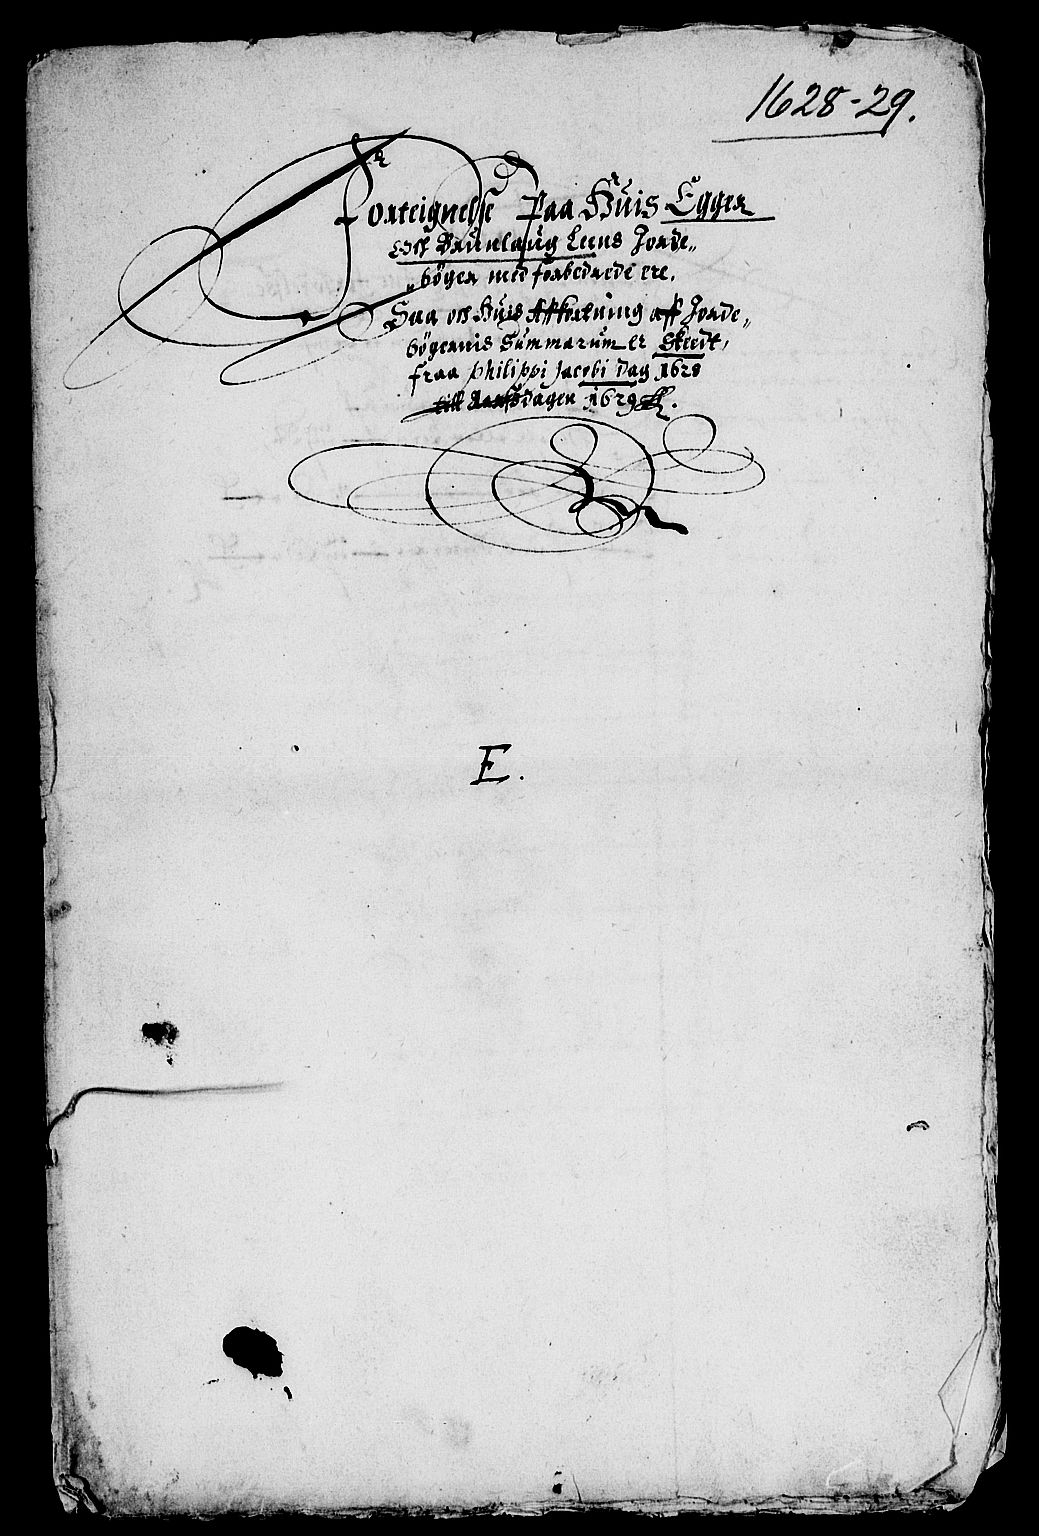 1628-29.
Forteignelse Paa Huis Egger
Och Brunlaug Leens Jorde„
„bøger med forbedrede ere.
Saa och Huis Affkortning aff Jorde„
bøgernis Summarum er Skeedt,
fraa Philippi Jacobi Dag 1628
till Aarsdagen 1629
E.